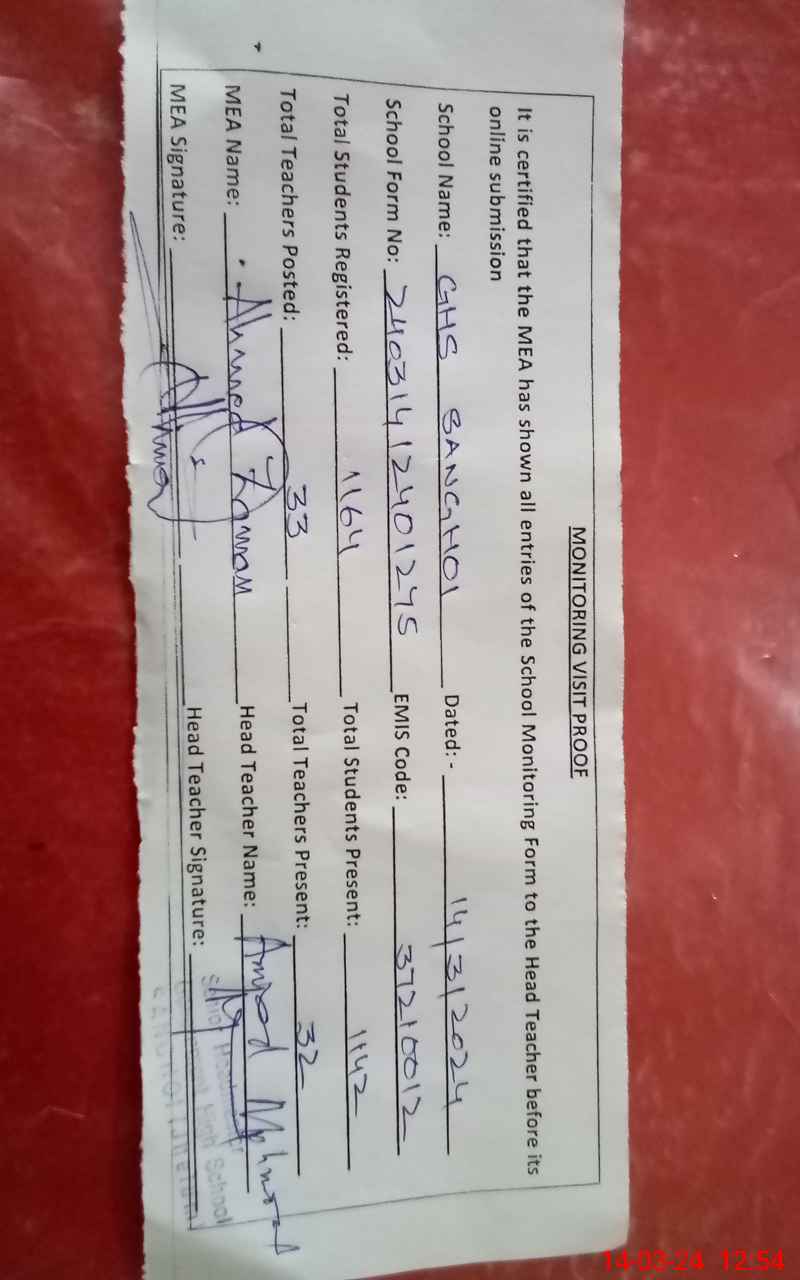 MONITORING VISIT PROOF
It is certified that the MEA has shown all entries of the School Monitoring Form to the Head Teacher before its
online submission
School Name: GHS SANGHOI Dated: - 14/3/2024
School Form No: 24031412401245 EMIS Code: 37210012
Total Students Registered: 1164 Total Students Present: 1142
Total Teachers Posted: 33 Total Teachers Present: 32
MEA Name: Ahmed Zaman Head Teacher Name: Amjad Mehmood
MEA Signature: Head Teacher Signature:
Senior Headmaster
Government High School
SANGHOI (Jhelum)
14-03-24 12:54